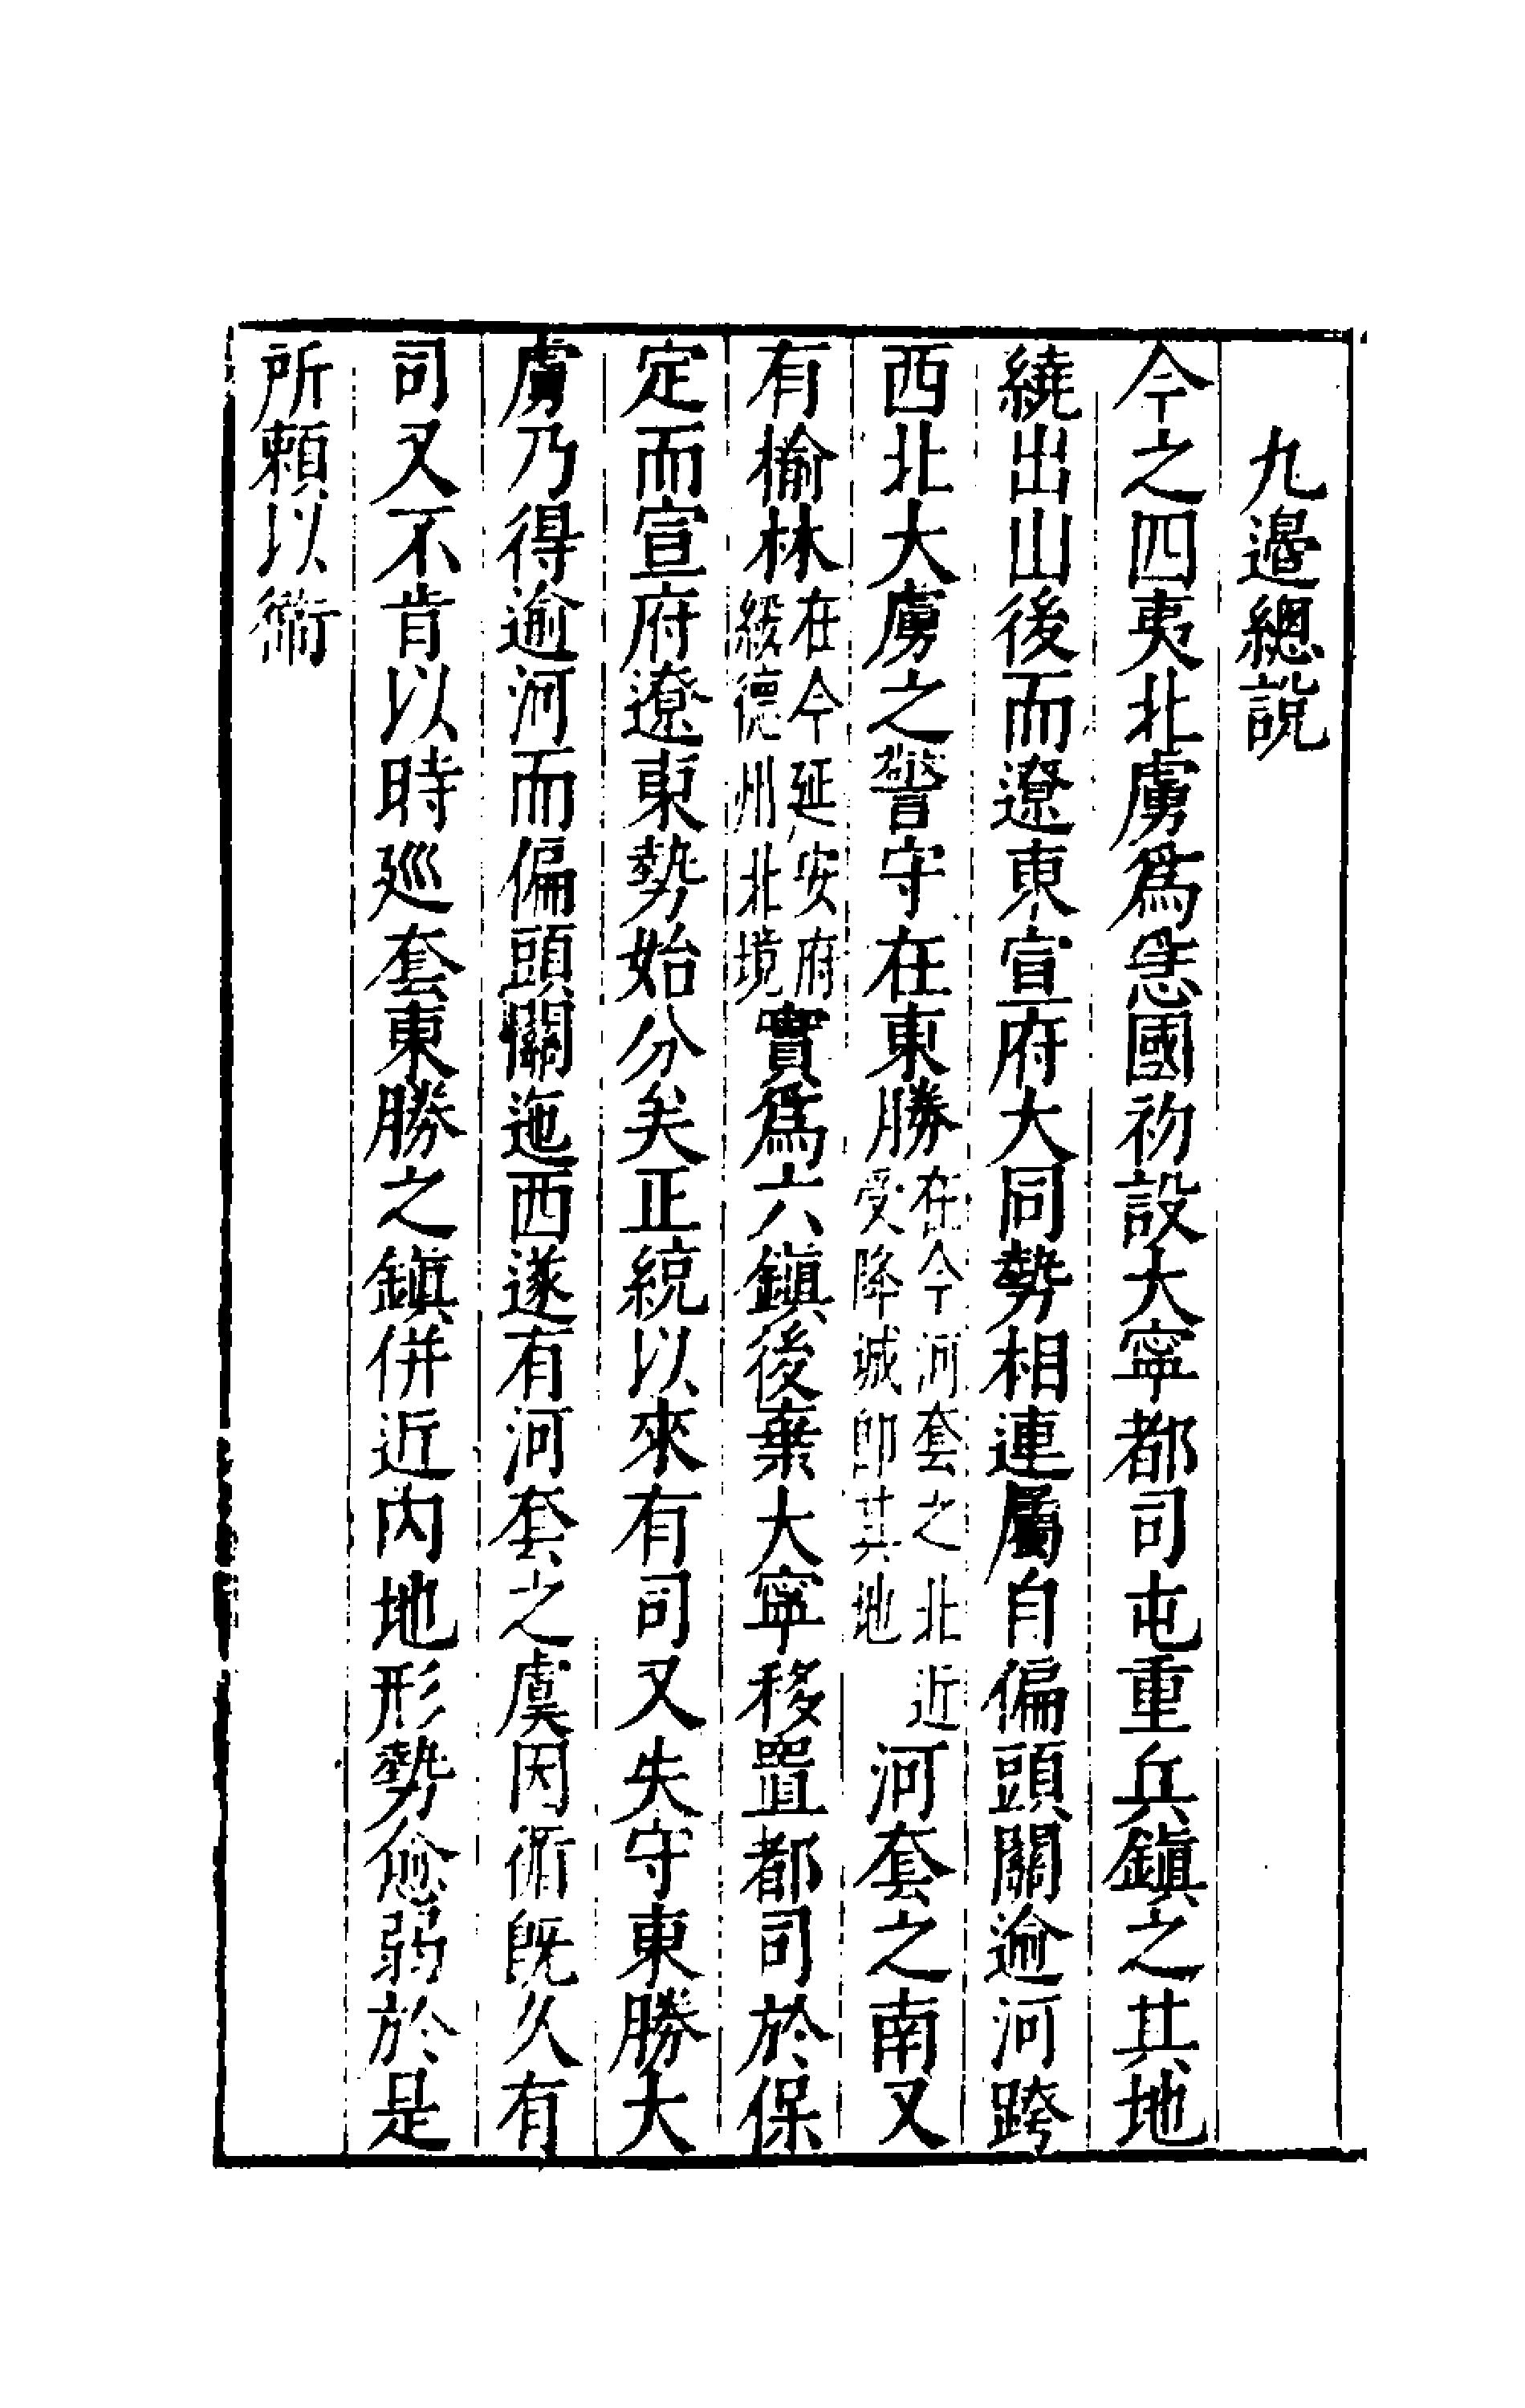 九邊總說
今之四夷北虜為患國初設大寧都司屯重兵鎮之其地
繞出山後而遼東宣府大同勢相連屬自偏頭關逾河跨
西北大虜之警守在東勝在今河套之北近受降城即其地河套之南又
有榆林在今延安府綏德州北境實為六鎮後棄大寧移置都司於保
定而宣府遼東勢始分矣正統以來有司又失守東勝大
虜乃得逾河而偏頭關迤西遂有河套之虞因循既久有
司又不肯以時廵套東勝之鎮併近内地形勢愈弱於是
所賴以衛